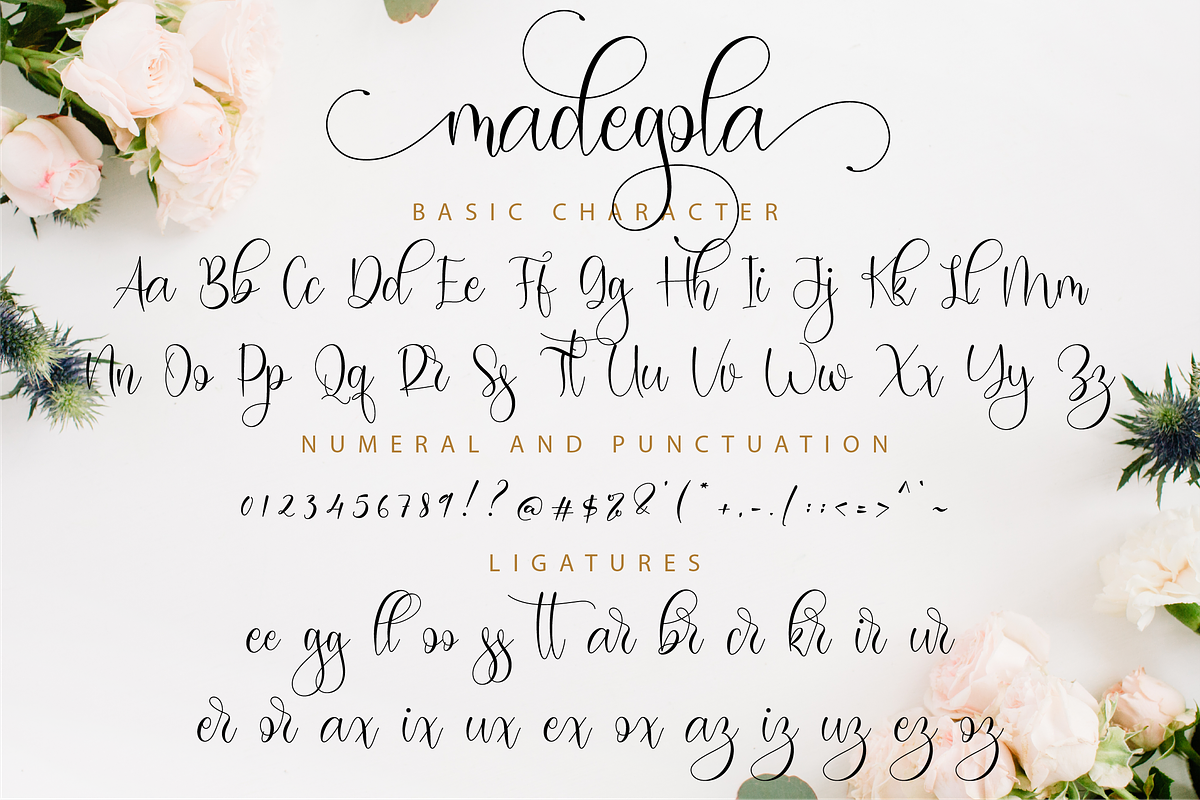 madegola
BASIC CHARACTER
Aa Bb Cc Dd Ee Ff Gg Hh Ii Jj Kk Ll Mm
Nn Oo Pp Qq Rr Ss Tt Uu Vv Ww Xx Yy Zz
NUMERAL AND PUNCTUATION
0123456789!? @#$%&'(*+,-./:;<=>^`~
LIGATURES
ee gg ll oo ss tt ar br cr kr ir ur
er or ax ix ux ex ox az iz uz ez oz